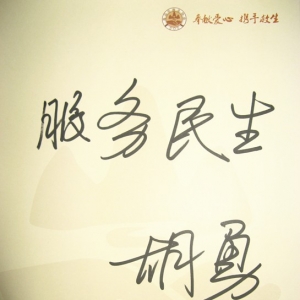 奉献爱心 携手众生
服务民生
胡勇